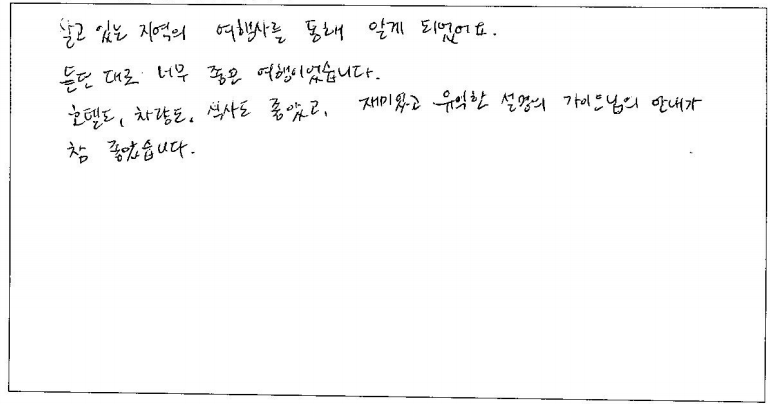 살고 있는 지역의 여행사를 통해 알게 되었어요.
듣던 대로 너무 좋은 여행이었습니다.
호텔도, 차량도, 식사도 좋았고, 재미있고 유익한 설명의 가이드님의 안내가
참 좋았습니다.